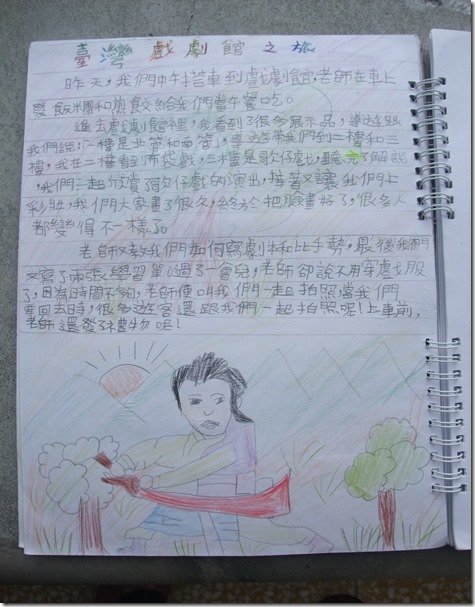 臺灣戲劇館之旅
昨天，我們中午搭車到戲劇館，老師在車上
發飯糰和煎餃給我們當午餐吃。
進去戲劇館裡，我看到了很多展示品，導遊跟
我們說：一樓是北管和南管，導遊帶我們到二樓和三
樓，我在二樓看到布袋戲，三樓是歌仔戲，聽完了解說
，我們一起欣賞了歌仔戲的演出，接著又讓我們上
彩妝，我們大家畫了很久，終於把臉畫好了，很多人
都變得不一樣了。
老師又教我們如何寫劇本和比手勢，最後我們
又寫了兩張學習單，過了一會兒，老師卻說不用穿戲服
了，因為時間不夠，老師便叫我們一起拍照，當我們
要回去時，很多遊客還跟我們一起拍照呢！上車前，
老師還發了禮物呢！